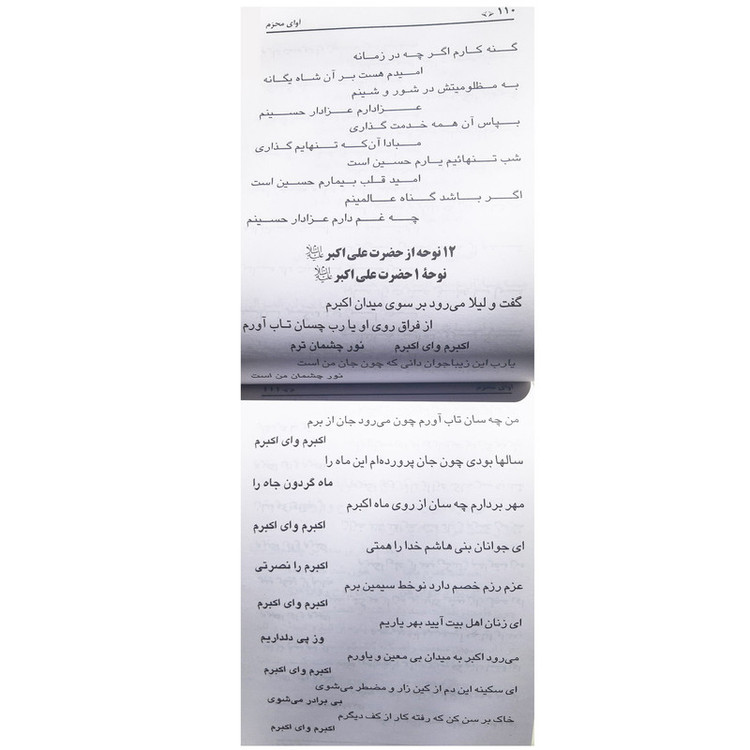 ۱۱۰
اوای محرم
گنه کارم اگر چه در زمانه
امیدم هست بر آن شاه یگانه
به مظلومیتش در شور و شینم
عزادارم عزادار حسینم
بپاس آن همه خدمت گذاری
مبادا آن‌که تنهایم گذاری
شب تنهائیم یارم حسین است
امید قلب بیمارم حسین است
اگر باشد گناه عالمینم
چه غم دارم عزادار حسینم
۱۲ نوحه از حضرت علی اکبر
نوحهٔ ۱ حضرت علی اکبر
گفت و لیلا می‌رود بر سوی میدان اکبرم
از فراق روی او یا رب چسان تاب آورم
اکبرم وای اکبرم نور چشمان ترم
یارب این زیبا جوان دانی که چون جان من است
نور چشمان من است
اوای محرم ۱۱۱
من چه سان تاب آورم چون می‌رود جان از برم
اکبرم وای اکبرم
سالها بودی چون جان پرورده‌ام این ماه را
ماه گردون جاه را
مهر بردارم چه سان از روی ماه اکبرم
اکبرم وای اکبرم
ای جوانان بنی هاشم خدا را همتی
اکبرم را نصرتی
عزم رزم خصم دارد نوخط سیمین برم
اکبرم وای اکبرم
ای زنان اهل بیت آیید بهر یاریم
وز پی دلداریم
می‌رود اکبر به میدان بی معین و یاورم
اکبرم وای اکبرم
ای سکینه این دم از کین زار و مضطر می‌شوی
بی برادر می‌شوی
خاک بر سن کن که رفته کار از کف دیگرم
اکبرم وای اکبرم